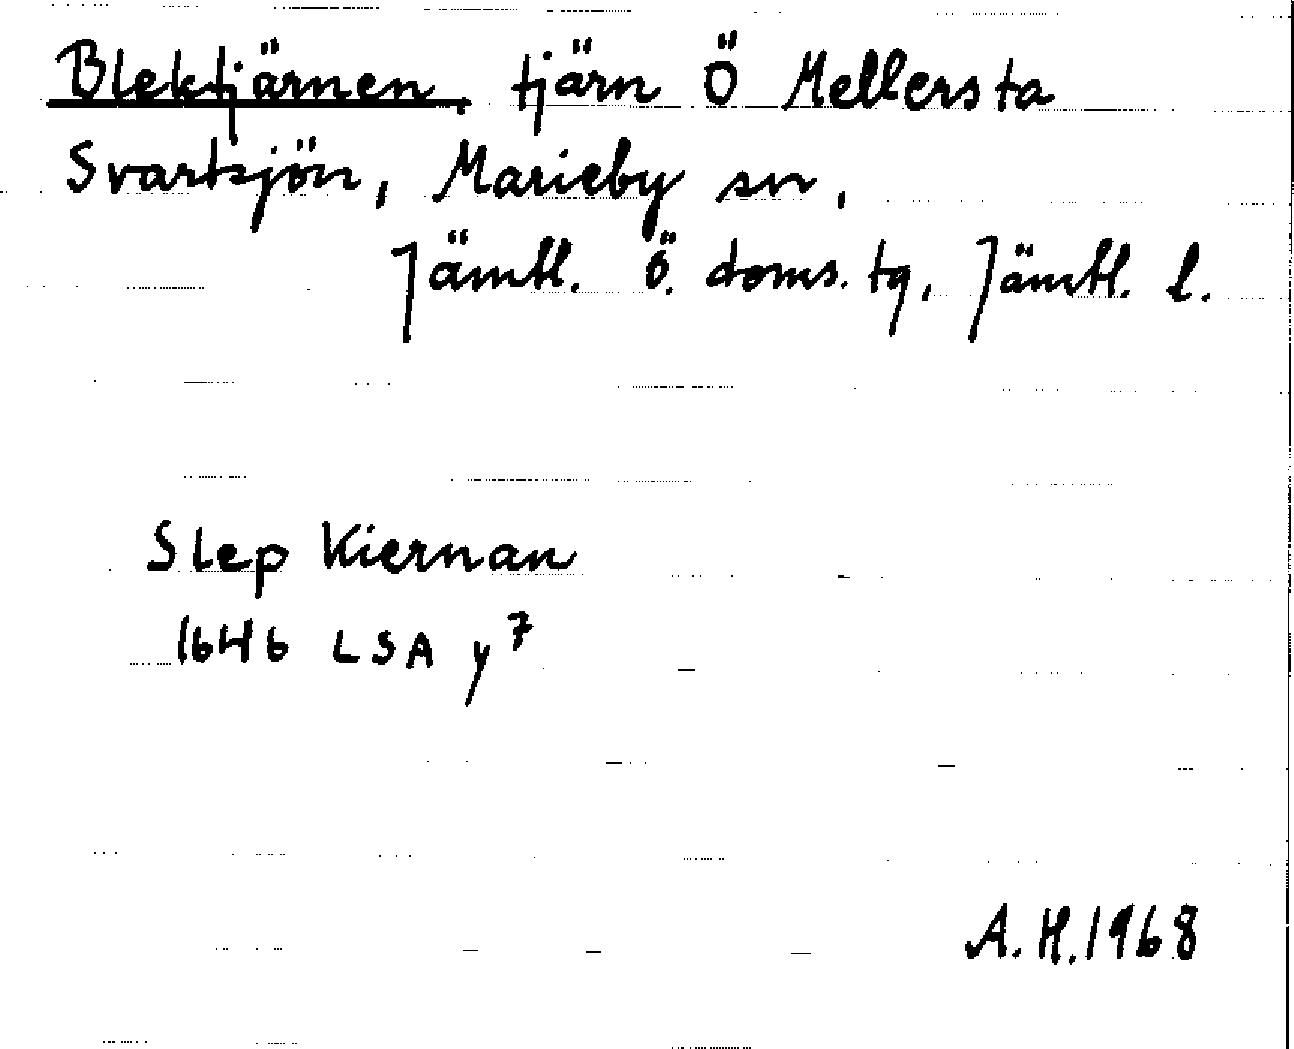 Blektjärnen, tjärn Ö Mellersta
Svartsjön, Marieby sn,
Jämtl. Ö. doms. tg, Jämtl. l.
Slep Kiernan
1646 LSA y7
A.H. 1968